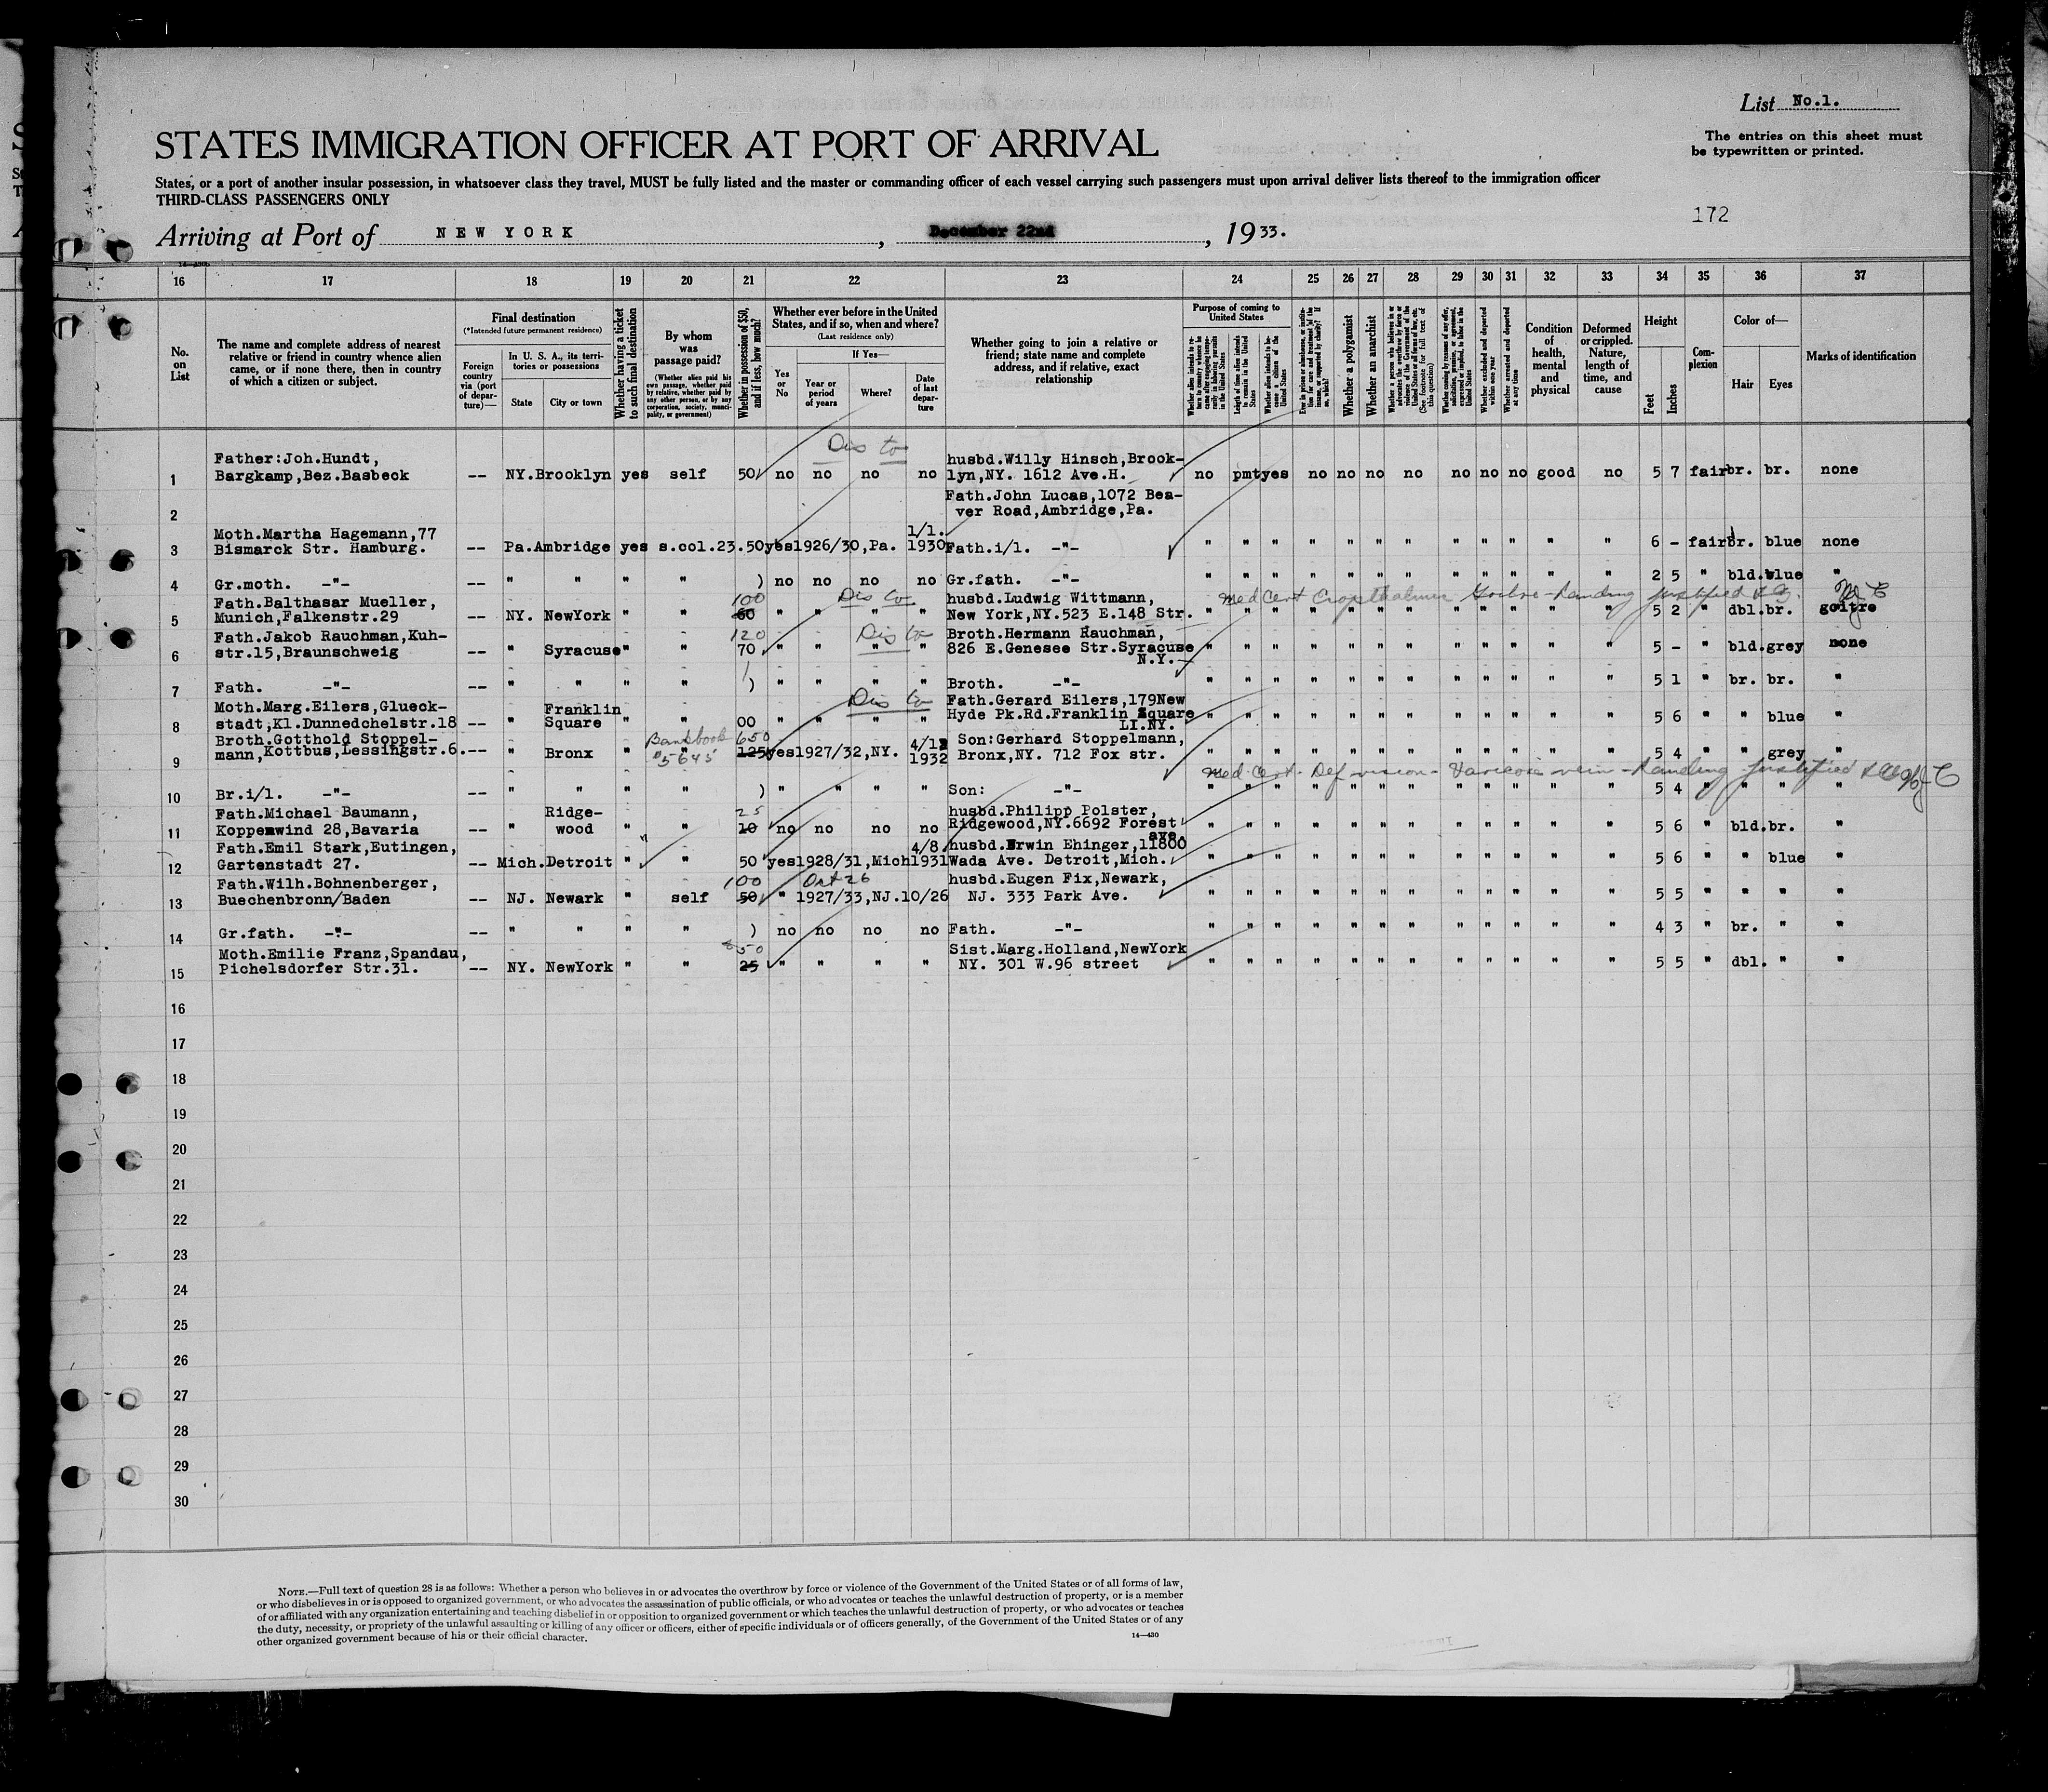 List No.1.
STATES IMMIGRATION OFFICER AT PORT OF ARRIVAL
The entries on this sheet must
be typewritten or printed.
States, or a port of another insular possession, in whatsoever class they travel, MUST be fully listed and the master or commanding officer of each vessel carrying such passengers must upon arrival deliver lists thereof to the immigration officer
THIRD-CLASS PASSENGERS ONLY
172
Arriving at Port of NEW YORK, December 22nd, 1933.
16 17 18 19 20 21 22 23 24 25 26 27 28 29 30 31 32 33 34 35 36 37
No. on List
The name and complete address of nearest relative or friend in country whence alien came, or if none there, then in country of which a citizen or subject.
Final destination
(*Intended future permanent residence)
Foreign country via (port of departure)—
In U. S. A., its territories or possessions
State
City or town
Whether having a ticket to such final destination
By whom was passage paid?
(Whether alien paid his own passage, whether paid by relative, whether paid by any other person, or by any corporation, society, municipality, or government)
Whether in possession of $50, and if less, how much?
Whether ever before in the United States, and if so, when and where?
(Last residence only)
Yes or No
If Yes—
Year or period of years
Where?
Date of last departure
Whether going to join a relative or friend; state name and complete address, and if relative, exact relationship
Purpose of coming to United States
Length of time alien intends to remain in the United States
Whether alien intends to become a citizen of the United States
Whether a polygamist
Whether an anarchist
Condition of health, mental and physical
Deformed or crippled. Nature, length of time, and cause
Height
Feet
Inches
Complexion
Color of—
Hair
Eyes
Marks of identification
Dis to
1 Father:Joh.Hundt, Bargkamp,Bez.Basbeck -- NY. Brooklyn yes self 50 no no no no husbd.Willy Hinsch,Brooklyn,NY. 1612 Ave.H. no pmt yes no no no no no no no good no 5 7 fair br. br. none
2 Fath.John Lucas,1072 Beaver Road,Ambridge,Pa.
3 Moth.Martha Hagemann,77 Bismarck Str. Hamburg. -- Pa. Ambridge yes s.col. 23.50 yes 1926/30,Pa. 1/1. 1930 Fath.i/l. -"- " " " " " " " " " " " " 6 - fair br. blue none
4 Gr.moth. -"- -- " " " " ) no no no no Gr.fath. -"- " " " " " " " " " " " " 2 5 " bld. blue "
Dis to
5 Fath.Balthasar Mueller, Munich,Falkenstr.29 -- NY. NewYork " " 100 60 " " " " husbd.Ludwig Wittmann, New York,NY.523 E.148 Str. " " " " " " " " " " " " 5 2 " dbl. br. goitre
Med Cert Goitre - Landing justified
Dis to
6 Fath.Jakob Rauchman,Kuhstr.15,Braunschweig -- " Syracuse " " 120 70 " " " " Broth.Hermann Rauchman, 826 E.Genesee Str.Syracuse N.Y. " " " " " " " " " " " " 5 - " bld. grey none
7 Fath. -"- -- " " " " ) " " " " Broth. -"- " " " " " " " " " " " " 5 1 " br. br. "
Dis to
8 Moth.Marg.Eilers,Glueckstadt,Kl.Dunnedchelstr.18 -- " Franklin Square " " 00 " " " " Fath.Gerard Eilers,179New Hyde Pk.Rd.Franklin Square LI.NY. " " " " " " " " " " " " 5 6 " " blue "
9 Broth.Gotthold Stoppelmann,Kottbus,Lessingstr.6. -- " Bronx " " Bankbook $5645 650 125 yes 1927/32,NY. 4/12 1932 Son:Gerhard Stoppelmann, Bronx,NY. 712 Fox str. " " " " " " " " " " " " 5 4 " " grey "
Med. Cert - Def vision - Varicose vein - Landing justified
10 Br.i/l. -"- -- " " " " ) " " " " Son: -"- " " " " " " " " " " " " 5 4 " " " "
11 Fath.Michael Baumann, Koppenwind 28,Bavaria -- " Ridgewood " " 25 10 no no no no husbd.Philipp Polster, Ridgewood,NY.6692 Forest ave. " " " " " " " " " " " " 5 6 " bld. br. "
12 Fath.Emil Stark,Eutingen, Gartenstadt 27. -- Mich. Detroit " " 50 yes 1928/31,Mich 4/8. 1931 husbd.Erwin Ehinger,11800 Wada Ave. Detroit,Mich. " " " " " " " " " " " " 5 6 " " blue "
13 Fath.Wilh.Bohnenberger, Buechenbronn/Baden -- NJ. Newark " self 100 50 " Oct 26 1927/33,NJ. 10/26 husbd.Eugen Fix,Newark, NJ. 333 Park Ave. " " " " " " " " " " " " 5 5 " " " "
14 Gr.fath. -"- -- " " " " ) no no no no Fath. -"- " " " " " " " " " " " " 4 3 " br. " "
15 Moth.Emilie Franz,Spandau, Pichelsdorfer Str.31. -- NY. NewYork " " 50 25 " " " " Sist.Marg.Holland,NewYork NY. 301 W.96 street " " " " " " " " " " " " 5 5 " dbl. " "
16
17
18
19
20
21
22
23
24
25
26
27
28
29
30
NOTE.—Full text of question 28 is as follows: Whether a person who believes in or advocates the overthrow by force or violence of the Government of the United States or of all forms of law,
or who disbelieves in or is opposed to organized government, or who advocates the assassination of public officials, or who advocates or teaches the unlawful destruction of property, or is a member
of or affiliated with any organization entertaining and teaching disbelief in or opposition to organized government or which teaches the unlawful destruction of property, or who advocates or teaches
the duty, necessity, or propriety of the unlawful assaulting or killing of any officer or officers, either of specific individuals or of officers generally, of the Government of the United States or of any
other organized government because of his or their official character.
14—430